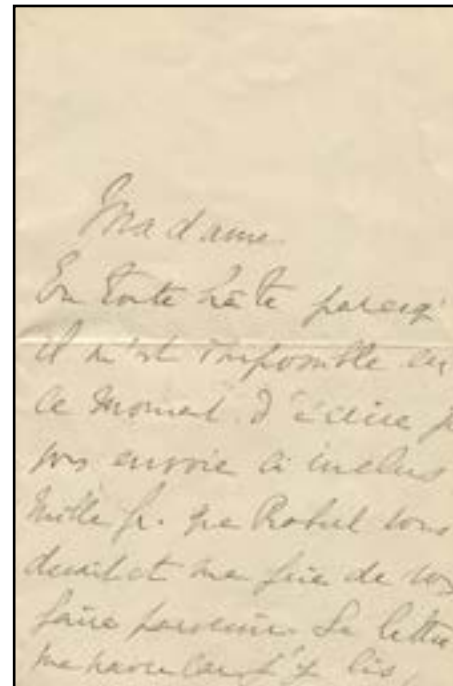 Madame
En toute hâte parcequ'
il m'est impossible en
ce moment d'écrire je
vous envoie ci inclus
mille fr. que Robert vous
devait et me prie de vous
faire parvenir. Sa lettre
me navre car j'y lis,